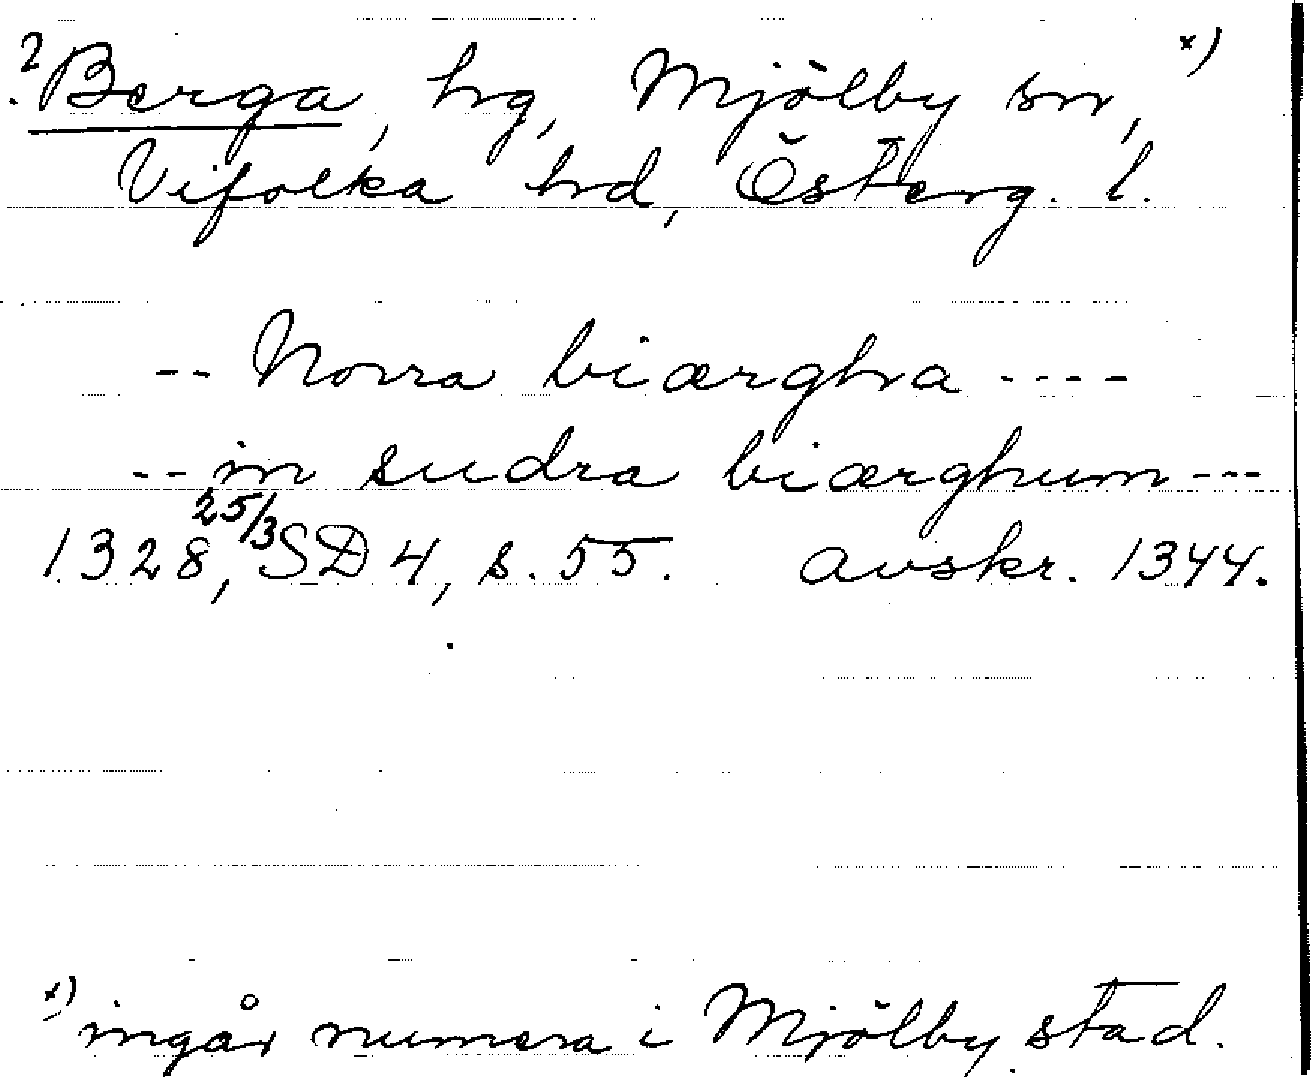 ? Berga, hg, Mjölby sn, x)
Vifolka hd, Österg. l.
-- Norra biærgha ----
-- in sudra biærghum ---
1328, 25/3 SD 4, s. 55. avskr. 1344.
x) ingår numera i Mjölby stad.